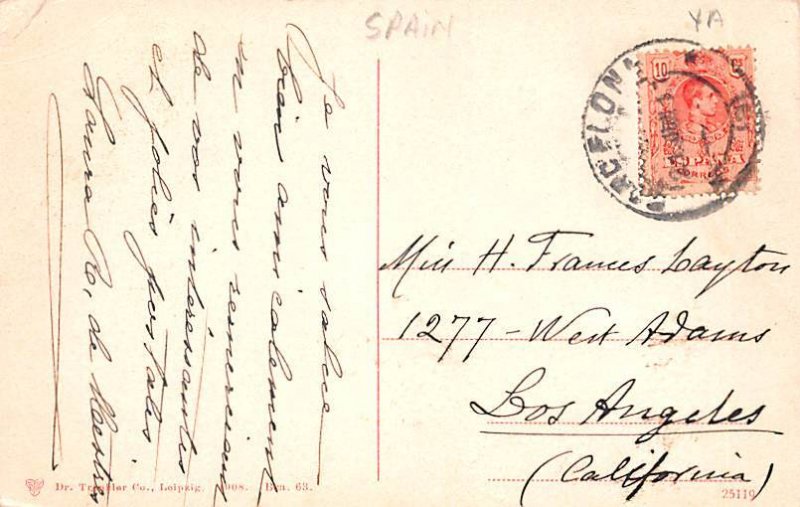 SPAIN
YA
Je vous salue
bien amicalement
en vous remerciant
de vos intéressantes
et jolies postales
Laura R. de
BARCELONA
10
CORREOS
Miss H. Frances Layton
1277 - West Adams
Los Angeles
(California)
Dr. Trenkler Co., Leipzig. 1908. Bca. 63.
25119